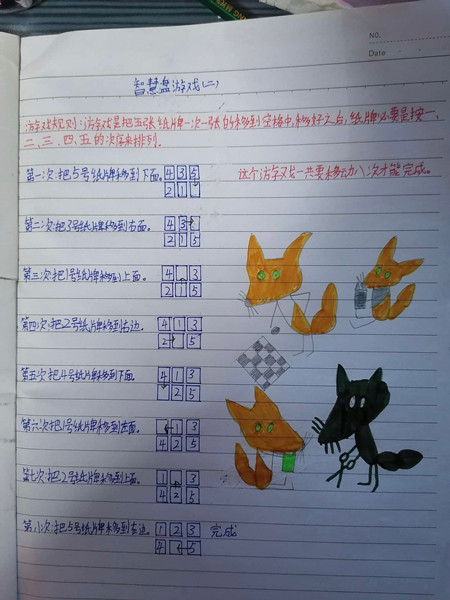 NO.
Date
智慧盘游戏(二)
游戏规则:游戏是把五张纸牌一次一张的移到空格中,移好之后,纸牌必要是按一、
二、三、四、五的次序来排列。
第一次:把5号纸牌移到下面。 4 3 5 这个游戏一共要移动八次才能完成。
2 1
第二次:把3号纸牌移到右面。 4 3
2 1 5
第三次:把1号纸牌移到上面。 4 3
2 1 5
第四次:把2号纸牌移到右边。 4 1 3
2 5
第五次:把4号纸牌移到下面。 4 1 3
2 5
第六次:把1号纸牌移到左面。 1 3
4 2 5
第七次:把2号纸牌移到上面。 1 3
4 2 5
第八次:把5号纸牌移到左边。 1 2 3 完成
4 5